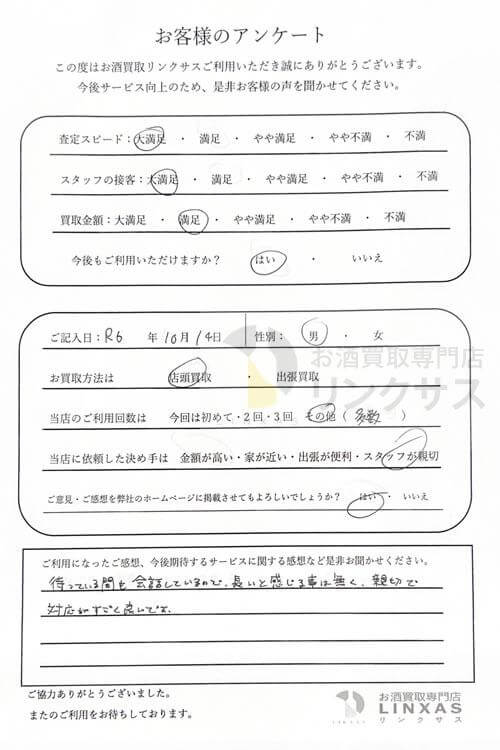 お客様のアンケート
この度はお酒買取リンクサスご利用いただき誠にありがとうございます。
今後サービス向上のため、是非お客様の声を聞かせてください。
査定スピード：大満足 ・ 満足 ・ やや満足 ・ やや不満 ・ 不満
スタッフの接客：大満足 ・ 満足 ・ やや満足 ・ やや不満 ・ 不満
買取金額：大満足 ・ 満足 ・ やや満足 ・ やや不満 ・ 不満
今後もご利用いただけますか？ はい ・ いいえ
ご記入日：R6 年 10月 14日 性別： 男 ・ 女
お酒買取専門店
リンクサス
お買取方法は 店頭買取 ・ 出張買取
当店のご利用回数は 今回は初めて・2回・3回 その他（ 多数 ）
当店に依頼した決め手は 金額が高い・家が近い・出張が便利・スタッフが親切
ご意見・ご感想を弊社のホームページに掲載させてもよろしいでしょうか？ はい ・ いいえ
ご利用になったご感想、今後期待するサービスに関する感想など是非お聞かせください。
待っている間も会話しているので、長いと感じる事は無く、親切で
対応がすごく良いです。
ご協力ありがとうございました。
またのご利用をお待ちしております。
お酒買取専門店
LINXAS
リンクサス